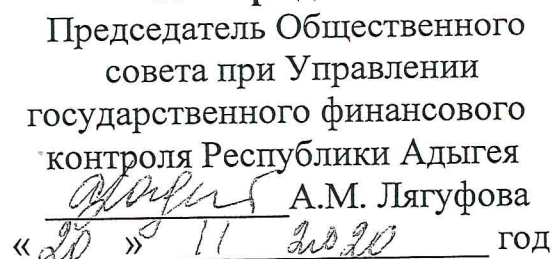 Председатель Общественного
совета при Управлении
государственного финансового
контроля Республики Адыгея
А.М. Лягуфова
« 20 » 11 2020 год